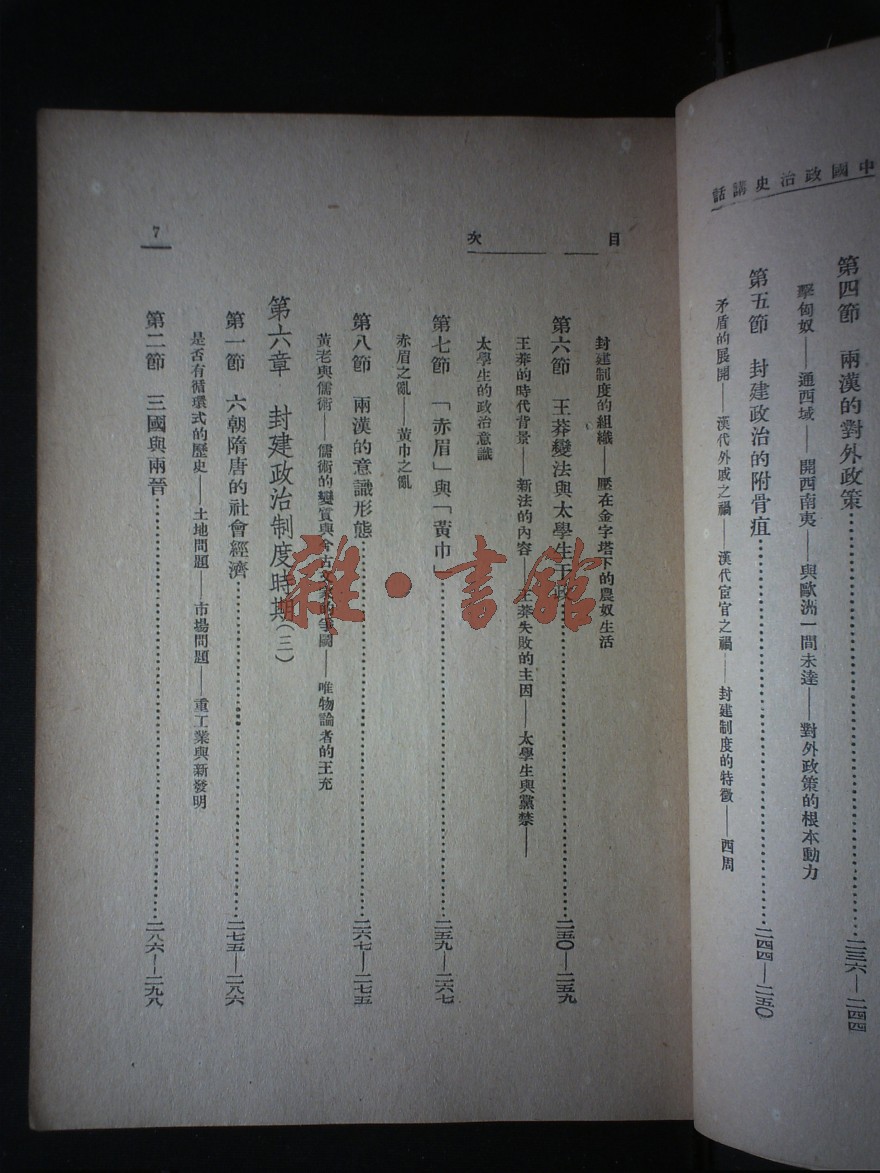 中國政治史講話
第四節 兩漢的對外政策……二三六—二四四
擊匈奴——通西域——開西南夷——與歐洲一間未達——對外政策的根本動力
第五節 封建政治的附骨疽……二四四—二五〇
矛盾的展開——漢代外戚之禍——漢代宦官之禍——封建制度的特徵——西周
目次
封建制度的組織——壓在金字塔下的農奴生活
第六節 王莽變法與太學生干政……二五〇—二五九
王莽的時代背景——新法的內容——王莽失敗的主因——太學生與黨禁——
太學生的政治意識
第七節 「赤眉」與「黃巾」……二五九—二六七
赤眉之亂——黃巾之亂
第八節 兩漢的意識形態……二六七—二七五
黃老與儒術——儒術的變質與今古文家的爭鬩——唯物論者的王充
第六章 封建政治制度時期(三)
第一節 六朝隋唐的社會經濟……二七五—二八六
是否有循環式的歷史——土地問題——市場問題——重工業與新發明
第二節 三國與兩晉……二八六—二九八
7
雜·書館